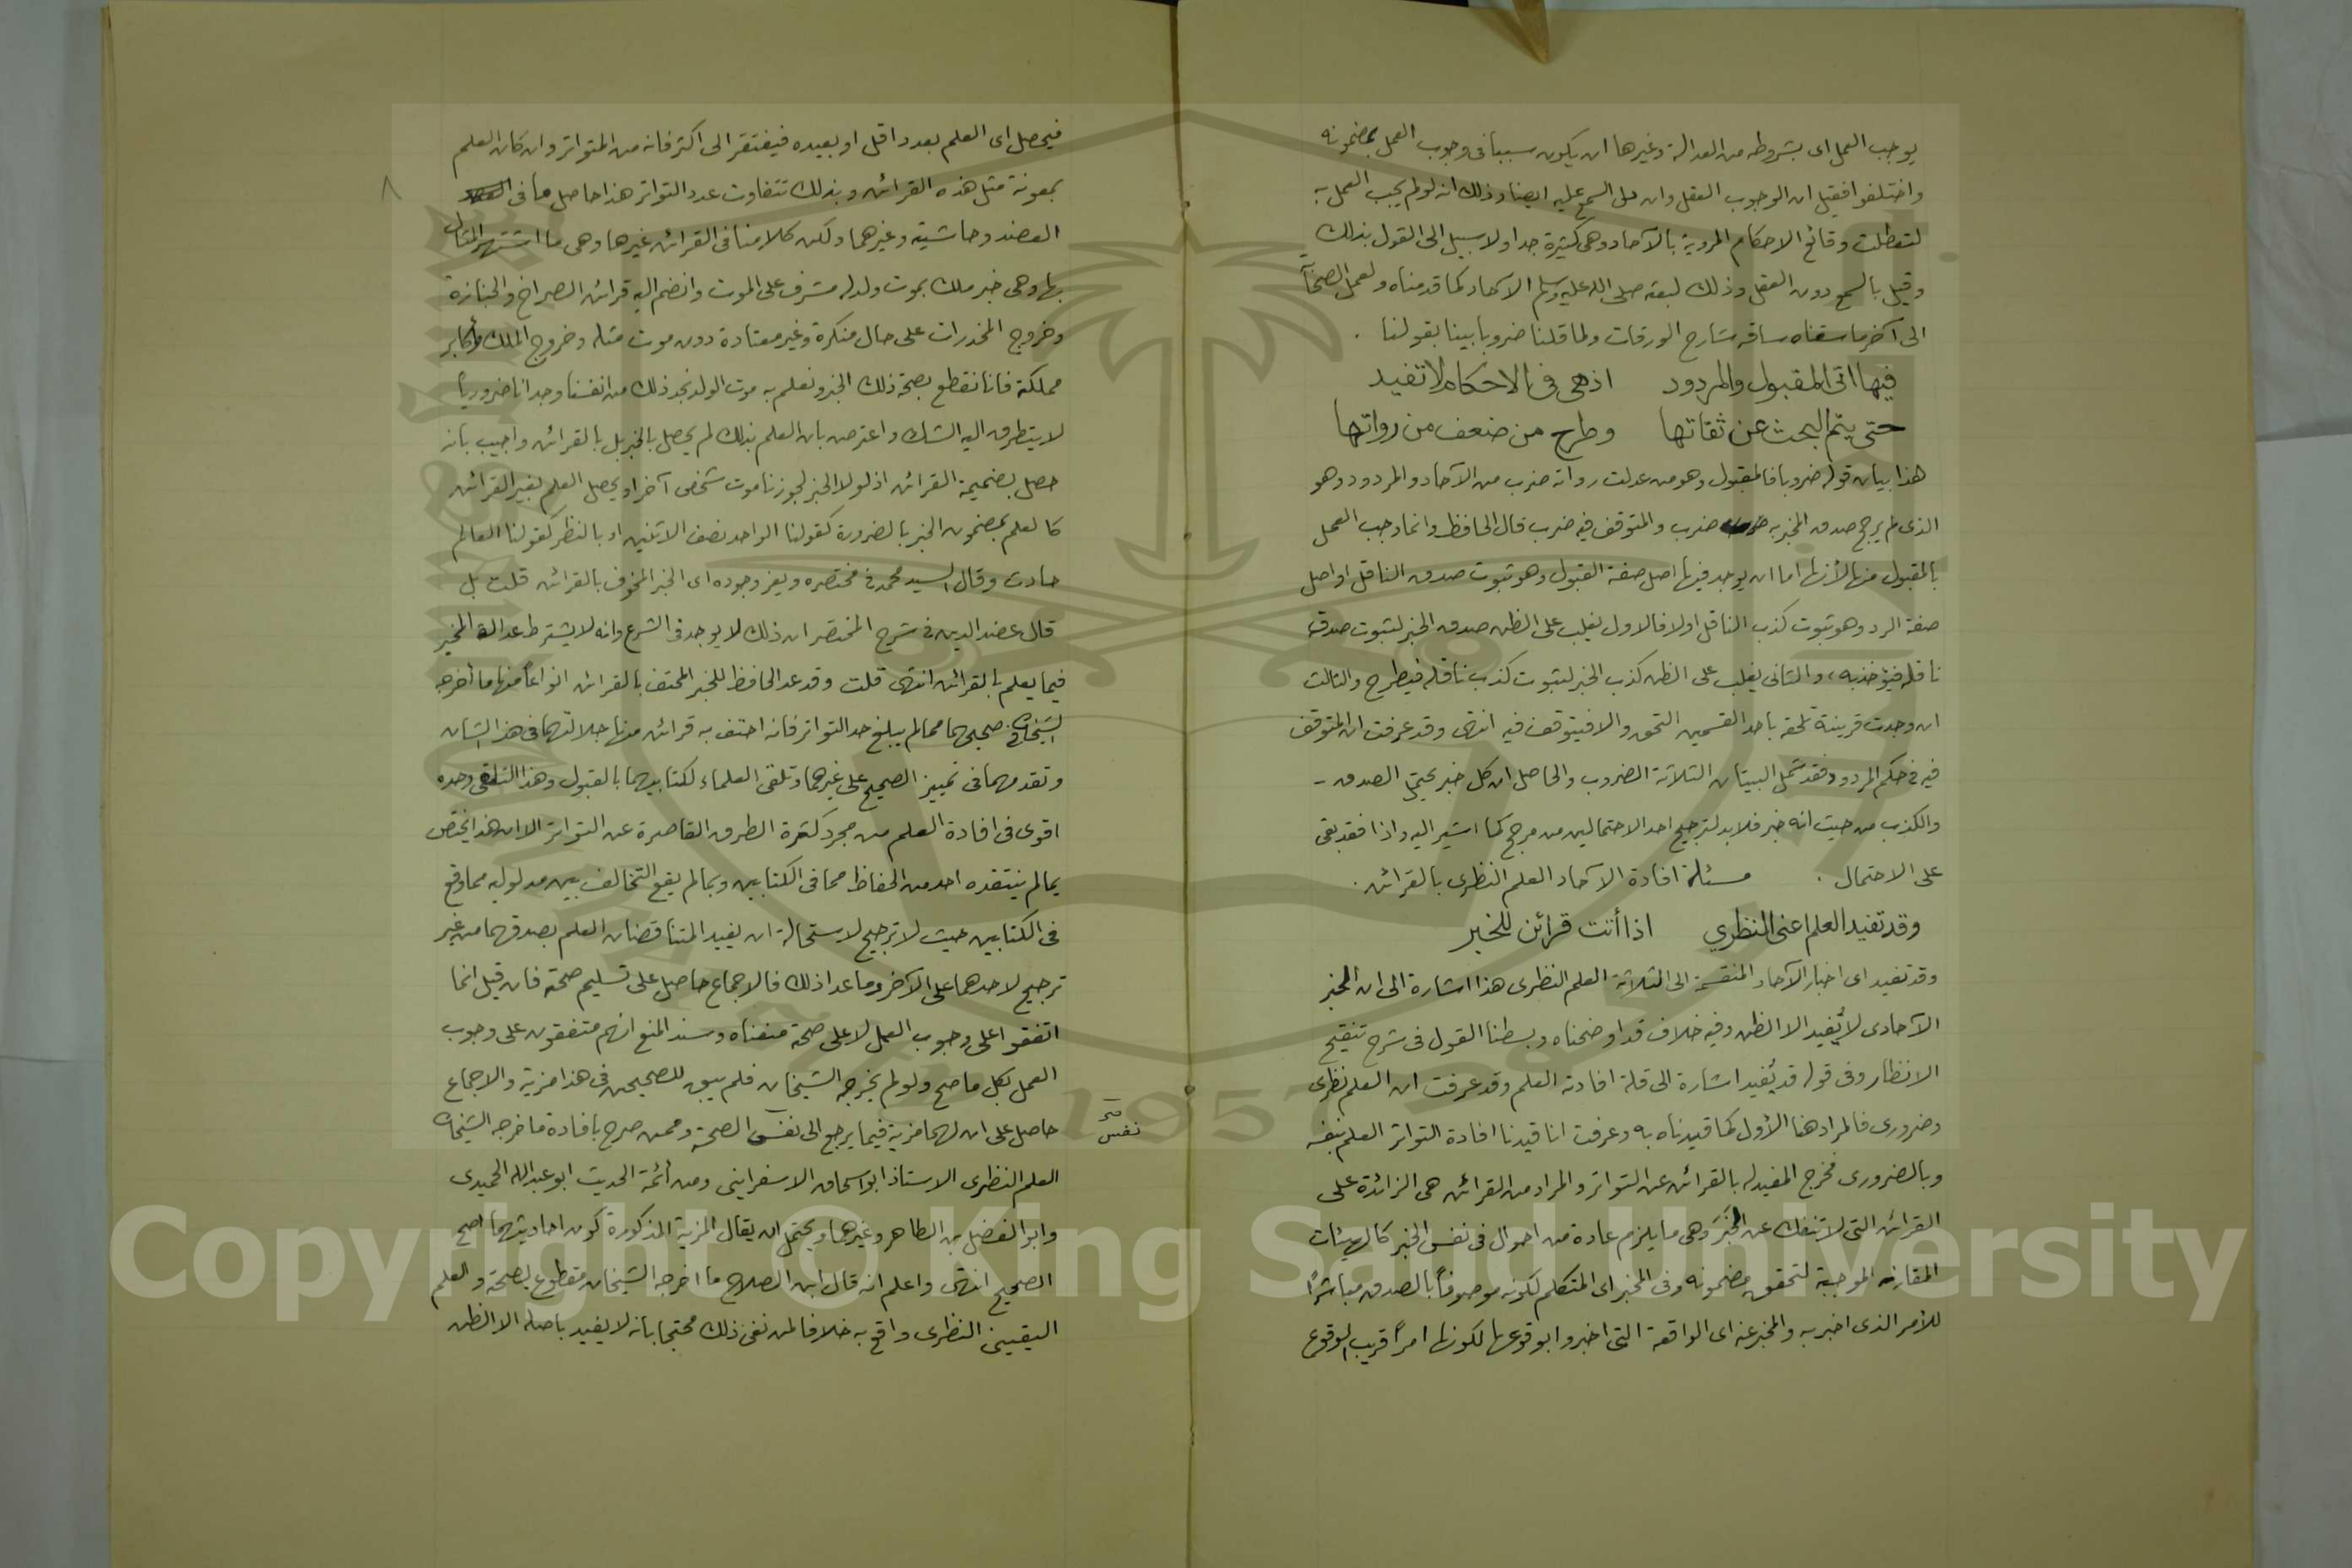 يوجب العمل اى بشروطه من العدالة وغيرها ان يكون سببا فى وجوب العمل بمضمونه
واختلفوا فقيل ان الوجوب العقل وان دل السمع عليه ايضا وذلك انه لو لم يجب العمل به
لتعطلت وقائع الاحكام المروية بالآحاد وهى كثيرة جدا ولا سبيل الى القول بذلك
وقيل بالسمع دون العقل وذلك لبعثه صلى الله عليه وسلم الآحاد كما قدمناه ولعمل الصحابة
الى آخر ما سقناه ساقه شارح الورقات ولما قلنا ضروبا بينا بقولنا .
فيها اتى المقبول والمردود اذ هى فى الاحكام لا تفيد
حتى يتم البحث عن ثقاتها وطرح من ضعف من رواتها
هذا بيان قوله ضروبا فالمقبول وهو من عدلت رواته ضرب من الآحاد والمردود وهو
الذى لم يرجح صدق المخبر به ضرب والمتوقف فيه ضرب قال الحافظ وانما وجب العمل
بالمقبول منها لأنها اما ان يوجد فيها اصل صفة القبول وهو ثبوت صدق الناقل او اصل
صفة الرد وهو ثبوت كذب الناقل اولا فالاول يغلب على الظن صدق الخبر لثبوت صدق
ناقله فيؤخذ به ، والثانى يغلب على الظن كذب الخبر لثبوت كذب ناقله فيطرح والثالث
ان وجدت قرينة تلحقه باحد القسمين التحق والا فيتوقف فيه انتهى وقد عرفت ان المتوقف
فيه فى حكم المردود فقد شمل البيتان الثلاثة الضروب والحاصل ان كل خبر يحتمل الصدق -
والكذب من حيث انه خبر فلا بد لترجيح احد الاحتمالين من مرجح كما اشير اليه واذا فقد بقى
على الاحتمال . مسئلة افادة الآحاد العلم النظرى بالقرائن .
وقد تفيد العلم اعنى النظري اذا أتت قرائن للخبر
وقد تفيد اى اخبار الآحاد المنقسمة الى الثلاثة العلم النظرى هذا اشارة الى ان الخبر
الآحادى لا يُفيد الا الظن وفيه خلاف قد اوضحناه وبسطنا القول فى شرح تنقيح
الانظار وفى قوله قد يُفيد اشارة الى قلة افادته العلم وقد عرفت ان العلم نظرى
وضرورى فالمراد هنا الأول كما قيدناه به وعرفت انا قيدنا افادة التواتر العلم بنفسه
وبالضرورى فخرج المفيد له بالقرائن عن التواتر والمراد من القرائن هى الزائدة على
القرائن التى لا تنفك عن الخبر وهى ما يلزم عادة من احوال فى نفس الخبر كالهيئات
المقارنة الموجبة لتحقق مضمونه وفى المخبر اى المتكلم لكونه موصوفاً بالصدق مباشرًا
للأمر الذى اخبر به والمخبر عنه اى الواقعة التى اخبروا بوقوعها لكونها امراً قريب الوقوع
٨
فيحصل اى العلم بعدد اقل او بعيده فيفتقر الى اكثر فانه من المتواتر وان كان العلم
بمعونة مثل هذه القرائن وبذلك تتفاوت عدد التواتر هذا حاصل ما فى
العضد وحاشيته وغيرهما ولكن كلامنا فى القرائن غيرها وهى ما اشتهر المثال
بها وهى خبر ملك بموت ولد له مشرف على الموت وانضم اليه قرائن الصراخ والجنازة
وخروج المخدرات على حال منكرة وغير معتادة دون موت مثله وخروج الملك وأكابر
مملكة فانا نقطع بصحة ذلك الخبر ونعلم به موت الولد نجد ذلك من انفسنا وجدانا ضرورياً
لا يتطرق اليه الشك واعترض بان العلم بذلك لم يحصل بالخبر بل بالقرائن واجيب بانه
حصل بضميمة القرائن اذ لولا الخبر لجوزنا موت شخص آخر او يحصل العلم بغير القرائن
كالعلم بمضمون الخبر بالضرورة كقولنا الواحد نصف الاثنين او بالنظر كقولنا العالم
حادث وقال السيد محمد فى مختصره ويعز وجوده اى الخبر المحفوف بالقرائن قلت بل
قال عضد الدين فى شرح المختصر ان ذلك لا يوجد فى الشرع وانه لا يشترط عدالة المخبر
فيما يعلم بالقرائن انتهى قلت وقد عد الحافظ للخبر المحتف بالقرائن انواعاً منها ما أخرجه
الشيخان فى صحيحيهما مما لم يبلغ حد التواتر فانه احتف به قرائن منها جلالتهما فى هذا الشان
وتقدمهما فى تمييز الصحيح على غيرهما وتلقى العلماء لكتابيهما بالقبول وهذا التلقى وحده
اقوى فى افادة العلم من مجرد كثرة الطرق القاصرة عن التواتر الا ان هذا يختص
بما لم ينتقده احد من الحفاظ مما فى الكتابين وبما لم يقع التخالف بين مدلوليه مما وقع
فى الكتابين حيث لا ترجيح لاستحالة ان يفيد المتناقضان العلم بصدقهما من غير
ترجيح لاحدهما على الآخر وما عدا ذلك فالاجماع حاصل على تسليم صحته فان قيل انما
اتفقوا على وجوب العمل لا على صحته منعناه وسند المنع انهم متفقون على وجوب
العمل بكل ما صح ولو لم يخرجه الشيخان فلم يبق للصحيحين فى هذا مزية والاجماع
حاصل على ان لهما مزية فيما يرجع الى نفس الصحة وممن صرح بافادة ما خرجه الشيخان
نفس
العلم النظرى الاستاذ ابو اسحاق الاسفراينى ومن أئمة الحديث ابو عبدالله الحميدى
وابو الفضل بن الطاهر وغيرهما ويحتمل ان يقال المزية المذكورة كون احاديثهما اصح
الصحيح انتهى واعلم انه قال ابن الصلاح ما اخرجه الشيخان مقطوع بصحته والعلم
اليقينى النظرى واقع به خلافا لمن نفى ذلك محتجا بانه لا يفيد باصله الا الظن
1957
Copyright © King Saud University